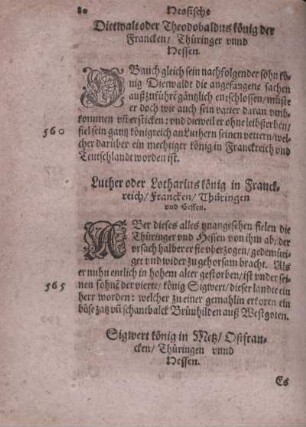 80 Hessische
Dietwalt oder Theodobaldus könig der
Francken / Thüringer vnnd
Hessen.
OB auch gleich sein nachfolgender sohn kö-
nig Dietwaldt die angefangne sachen
außzuführē gäntzlich entschlossen / müste
er doch wie auch sein vatter daran vmb-
kommen vñ ersticken: vnd dieweil er ohne leibs erben /
560 fiel sein gantz königreich an Luthern seinen vettern / wel-
cher darüber ein mechtiger könig in Franckreich vnd
Teutschlandt worden ist.
Luther oder Lotharius könig in Franck-
reich / Francken / Thüringen
vnd Hessen.
ABer dieses alles vnangesehen fielen die
Thüringer vnd Hessen von ihm ab / der
vrsach halber er sie vberzogen / gedemüti-
get vnd wider zu gehorsam bracht. Als
er nuhn entlich in hohem alter gestorben / ist vnder sei-
565 nen söhnē der vierte / könig Sigwert / dieser landte ein
herr worden: welcher zu einer gemahlin erkoren ein
böse zatz vñ schantbalck Brünhilden auß Westgoten.
Sigwert könig in Metz / Ostfran-
cken / Thüringen vnnd
Hessen.
Es